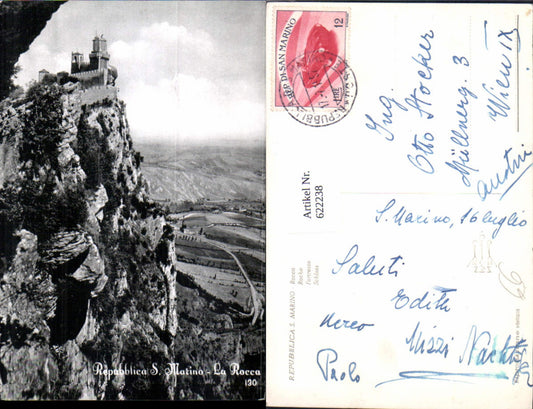 Repubblica S. Marino - La Rocca
130
REP. DI SAN MARINO
12
LIRE
Artikel Nr.
622238
Ing.
Otto Stocker
Müllnerg. 3
Wien IX
Austria
S. Marino, 16 luglio
Saluti
Edith
Mizzi
Paolo
REPUBBLICA S. MARINO
Rocca
Roche
Fortress
Schloss